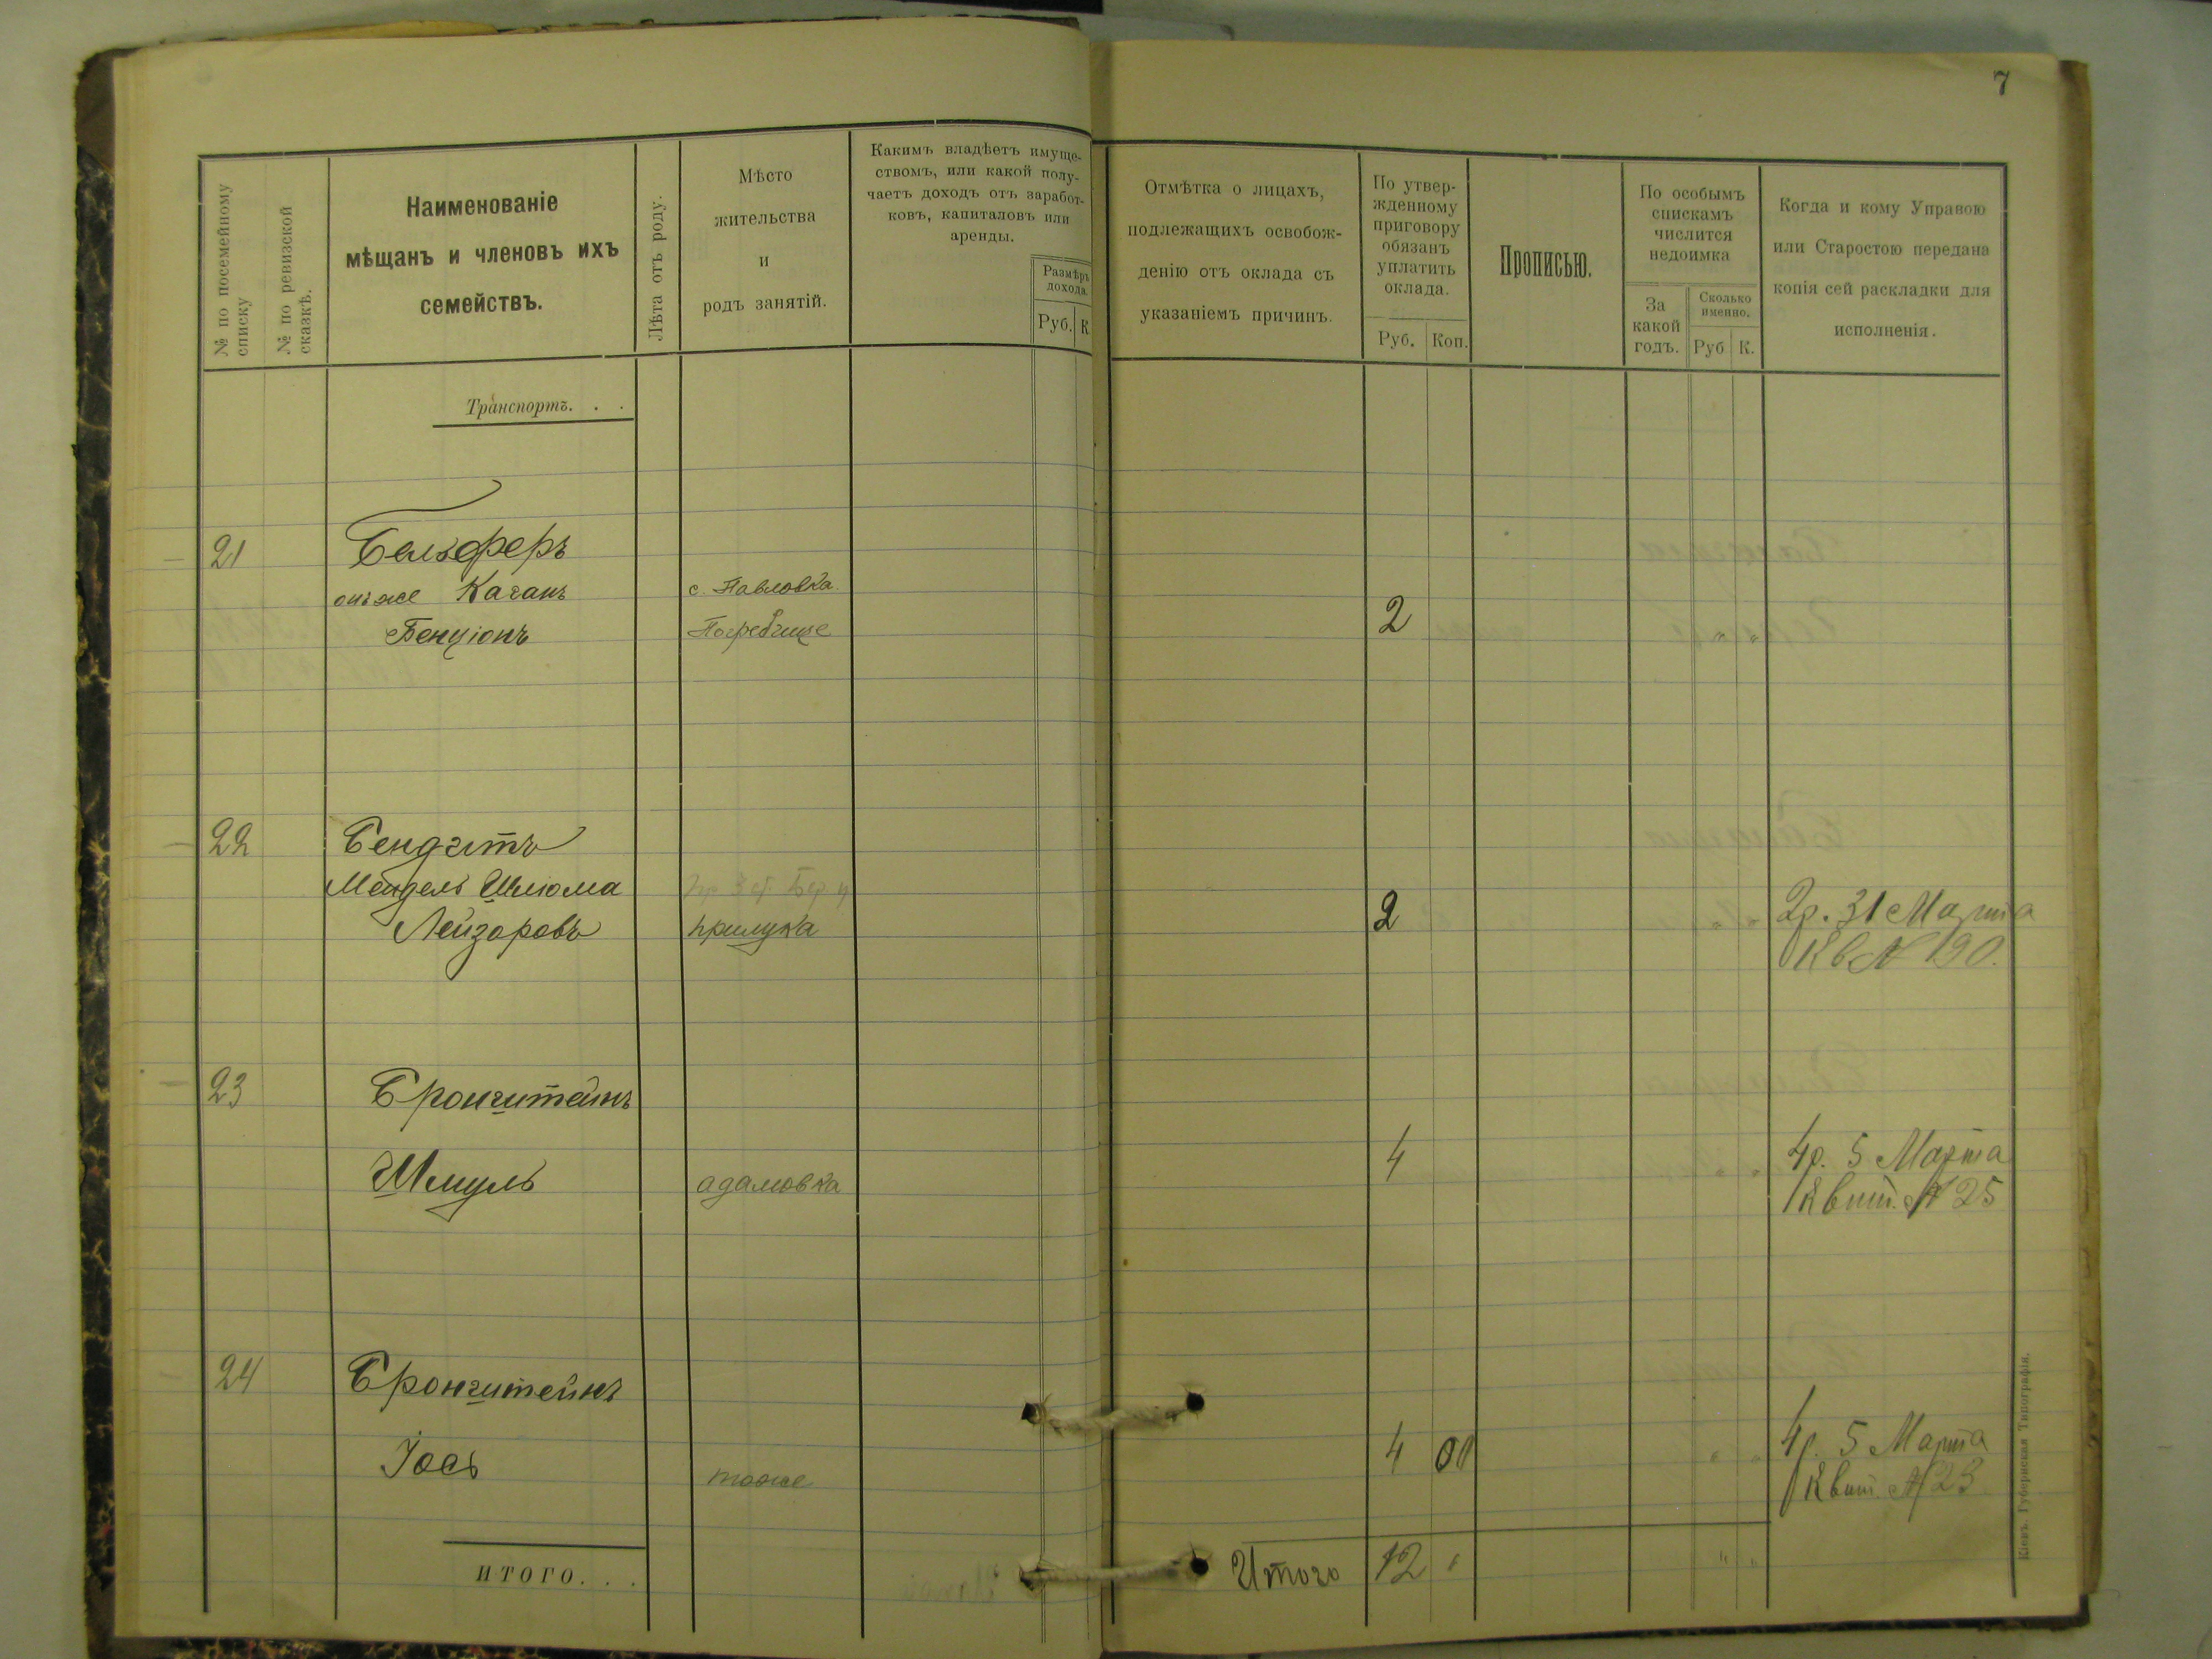 7
№ по посемейному списку
№ по ревизской сказкѣ.
Наименованіе
мѣщанъ и членовъ ихъ
семействъ.
Лѣта отъ роду.
Мѣсто
жительства
и
родъ занятій.
Какимъ владѣетъ имуще-
ствомъ, или какой полу-
чаетъ доходъ отъ заработ-
ковъ, капиталовъ или
аренды.
Размѣръ
дохода.
Руб. К
Отмѣтка о лицахъ,
подлежащихъ освобож-
денію отъ оклада съ
указаніемъ причинъ.
По утвер-
жденному
приговору
обязанъ
уплатить
оклада.
Руб. Коп.
Прописью.
По особымъ
спискамъ
числится
недоимка
За
какой
годъ.
Сколько
именно.
Руб К.
Когда и кому Управою
или Старостою передана
копія сей раскладки для
исполненія.
Транспортъ. . .
21 Бельферъ
онъ же Каганъ с. Павловка
Бенціонъ Погребище 2 " "
22 Бендитъ
Мендель Шлюма
Лейзоровъ прилука 2 " "
2р. 31 Марта
Кв № 190.
23 Бронштейнъ
Шмуль адамовка 4 " "
4р. 5 Марта
Квит. № 25
24 Бронштейнъ
Іось тоже 4 00 " "
4р. 5 Марта
Квит. № 23
ИТОГО. . .
Итого 12 " " "
Кіевъ. Губернская Типографія.